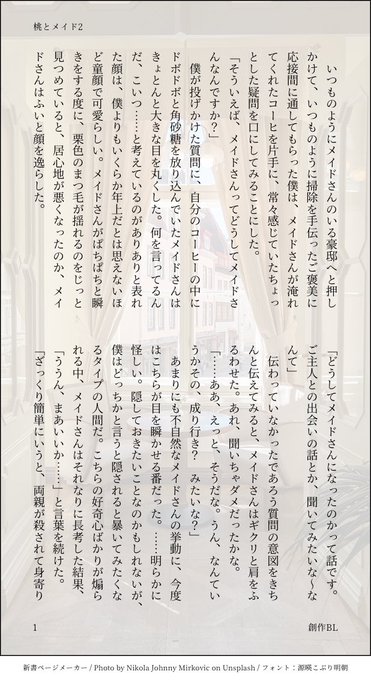 桃とメイド2
いつものようにメイドさんのいる豪邸へと押し
かけて、いつものように掃除を手伝ったご褒美に
応接間に通してもらった僕は、メイドさんが淹れ
てくれたコーヒを片手に、常々感じていたちょっ
とした疑問を口にしてみることにした。
「そういえば、メイドさんってどうしてメイドさ
んなんですか?」
僕が投げかけた質問に、自分のコーヒーの中に
ドボドボと角砂糖を放り込んでいたメイドさんは
きょとんと大きな目を丸くした。何を言ってるん
だ、こいつ……と考えているのがありありと表れ
た顔は、僕よりもいくらか年上だとは思えないほ
ど童顔で可愛らしい。メイドさんがぱちぱちと瞬
きをする度に、栗色のまつ毛が揺れるのをじっと
見つめていると、居心地が悪くなったのか、メイ
ドさんはふいと顔を逸らした。
「どうしてメイドさんになったのかって話です。
ご主人との出会いの話とか、聞いてみたいな〜な
んて」
伝わっていなかったであろう質問の意図をきち
んと伝えてみると、メイドさんはギクリと肩をふ
るわせた。あれ、聞いちゃダメだったかな。
「……ああ、えっと、そうだな。うん、なんてい
うかその、成り行き? みたいな?」
あまりにも不自然なメイドさんの挙動に、今度
はこちらが目を瞬かせる番だった。……明らかに
怪しい。隠しておきたいことなのかもしれないが、
僕はどっちかと言うと隠されると暴いてみたくな
るタイプの人間だ。こちらの好奇心ばかりが煽ら
れる中、メイドさんはそれなりに長考した結果、
「ううん、まあいいか……」と言葉を続けた。
「ざっくり簡単にいうと、両親が殺されて身寄り
1
創作BL
新書ページメーカー / Photo by Nikola Johnny Mirkovic on Unsplash / フォント:源暎こぶり明朝